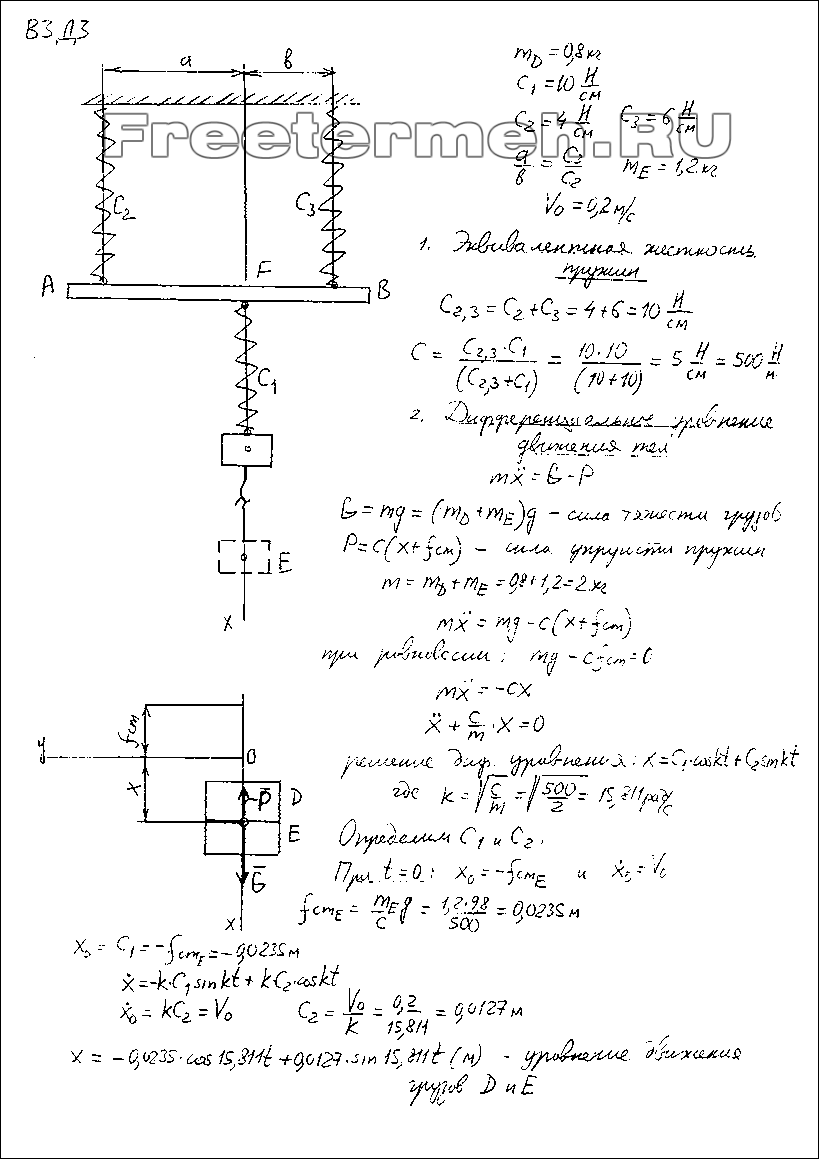 В3, Д3
a b
m_D = 0,8 кг
C₁ = 10 Н/см
C₂ = 4 Н/см C₃ = 6 Н/см
Freetermeh.RU
a/b = C₃/C₂ m_E = 1,2 кг
V₀ = 0,2 м/с
C₂ C₃
A F B
C₁
E
x
1. Эквивалентная жесткость
пружин
C₂,₃ = C₂ + C₃ = 4 + 6 = 10 Н/см
C = C₂,₃·C₁/(C₂,₃+C₁) = 10·10/(10+10) = 5 Н/см = 500 Н/м
2. Дифференциальное уравнение
движения тел
mẍ = G - P
G = mg = (m_D + m_E)g – сила тяжести грузов
P = c(x + fcm) – сила упругости пружин
m = m_D + m_E = 0,8 + 1,2 = 2 кг
mẍ = mg - c(x + fcm)
при равновесии: mg - cfcm = 0
mẍ = -cx
ẍ + c/m · x = 0
решение диф. уравнения: x = C₁·coskt + C₂sinkt
где k = √(c/m) = √(500/2) = 15,811 рад/с
Определим C₁ и C₂.
При t = 0: x₀ = -fcm_E и ẋ₀ = V₀
fcm_E = m_E g/c = 1,2·9,8/500 = 0,0235 м
fcm
y O
x
P̄ D
E
Ḡ
x
x₀ = C₁ = -fcm_E = -0,0235 м
ẋ = -k·C₁sinkt + kC₂·coskt
ẋ₀ = kC₂ = V₀ C₂ = V₀/k = 0,2/15,811 = 0,0127 м
x = -0,0235·cos15,811t + 0,0127·sin15,811t (м) - уровнение движения
грузов D и E